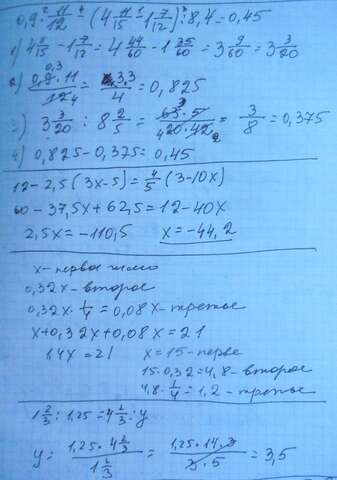 0,9 · 11/12 - (4 11/15 - 1 7/12) : 8,4 = 0,45
1) 4 11/15 - 1 7/12 = 4 44/60 - 1 35/60 = 3 9/60 = 3 3/20
2) 0,9 · 11 / 12 = 3,3 / 4 = 0,825
3) 3 3/20 : 8 2/5 = 63 · 5 / 20 · 42 = 3/8 = 0,375
4) 0,825 - 0,375 = 0,45
12 - 2,5 (3x - 5) = 4/5 (3 - 10x)
60 - 37,5x + 62,5 = 12 - 40x
2,5x = -110,5 x = -44,2
x - первое число
0,32x - второе
0,32x · 1/4 = 0,08x - третье
x + 0,32x + 0,08x = 21
1,4x = 21 x = 15 - перве
15 · 0,32 = 4,8 - второе
4,8 · 1/4 = 1,2 - третье
1 2/3 : 1,25 = 4 2/3 : y
y = 1,25 · 4 2/3 / 1 2/3 = 1,25 · 14 · 3 / 3 · 5 = 3,5